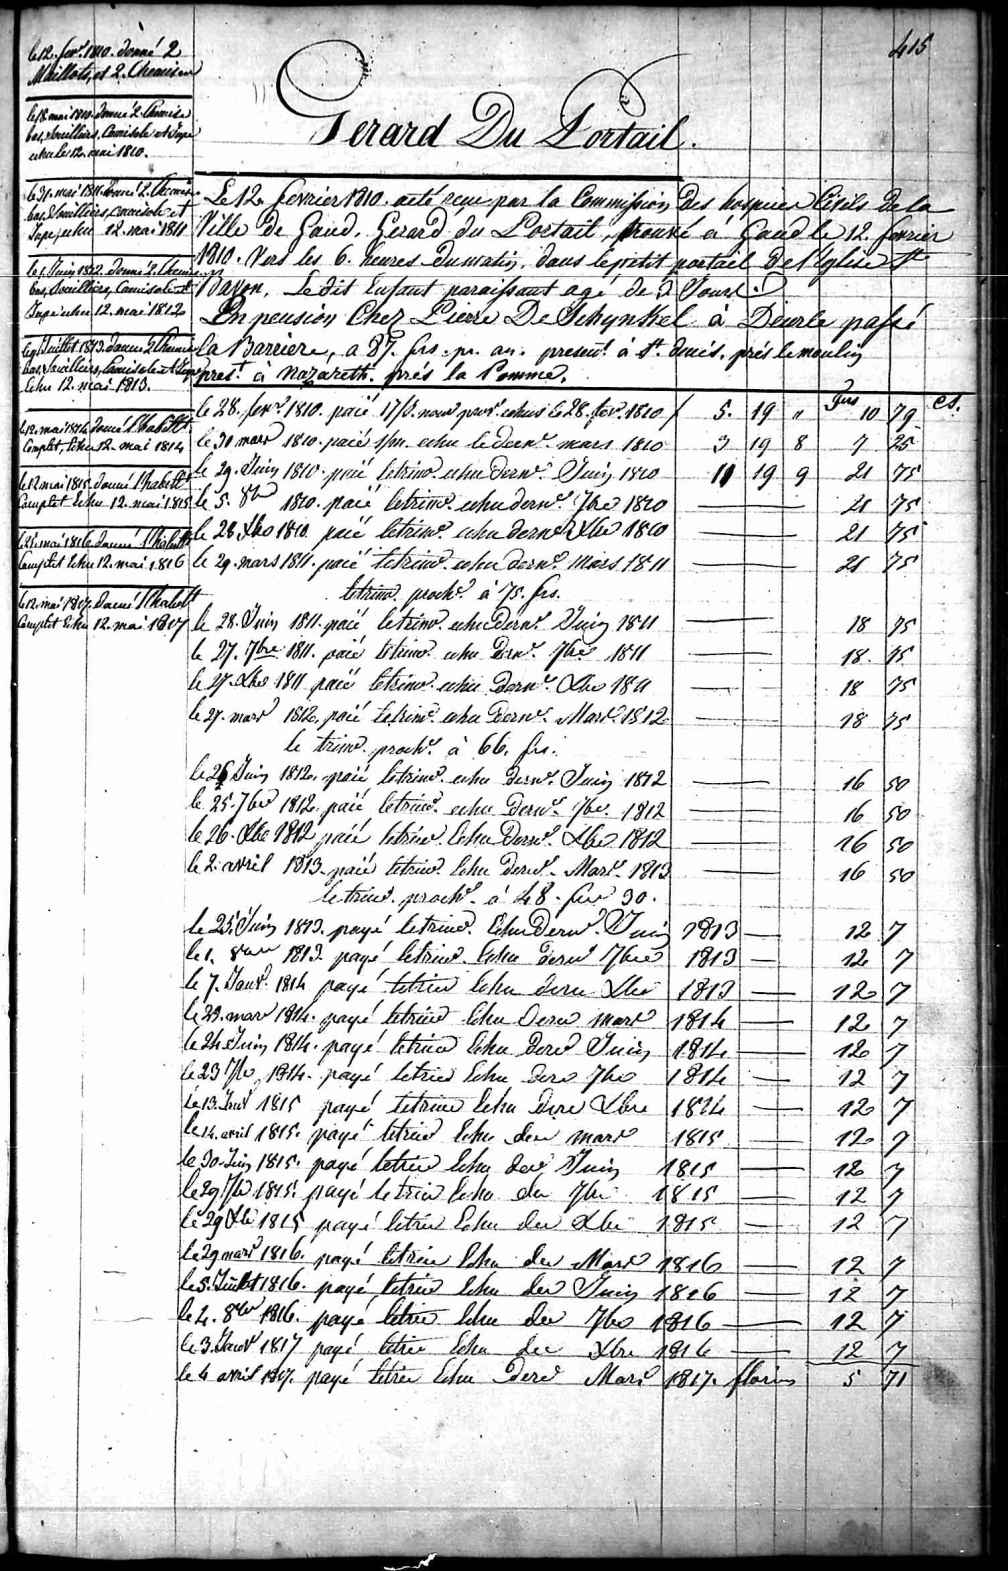 415
le 12. fevr. 1810. donné 2
Maillots, et 2. Chemises
le 18 mai 1810. donné 2. Chemise
bas, Souilliers, Camisole et Jupe
echu le 12. mai 1810.
le 31. mai 1811. donné 2. Chemise
bas, Souilliers, camisole et
Jupe, echu 12. mai 1811
le 1 Juin 1812. donné 2. Chemise
bas, Souilliers, Camisole et
Jupe echu 12. mai 1812
le 9 Juillet 1813. donné 2 Chemise
bas, Souilliers, Camisole et Jupe
Echu 12. mai 1813.
le 12. mai 1814 donné 1 habill.t
Complet, Echu 12. mai 1814
le 12 mai 1815. donné 1 habill.t
Complet Echu 12. mai 1815
le 21. mai 1816 donné 1 habill.t
Complet Echu 12. mai 1816
le 12. mai 1817. donné 1 habill.t
Complet Echu 12. mai 1817
Gerard Du Portail.
Le 12 fevrier 1810. a eté reçu par la Commission des hospices Civils de la
Ville de Gand. Gerard du Portail, trouvé à Gand le 12. fevrier
1810. Vers les 6. heures du matin, dans le petit portail de l'Eglise St
Bavon. Le dit Enfant paraissant agé de 2 Jours.
En pension Chez Pierre De Schynkel à Deurle passé
la Barriere, a 87. frs. pr. an. present.t à St. denis, prés le moulin
pres.t à Nazareth. prés la Pomme.
frs cs.
le 28. fevr. 1810. paié 17 J. nour. pour echus le 28. fevr. 1810 5. 19 " 10 79
le 31 mars 1810. paié 1 m. echu le dern.r mars 1810 3 19 8 7 25
le 29. Juin 1810. paié le trim.e echu dern.r Juin 1810 11 19 9 21 75
le 5. 8bre 1810. paié le trim.e echu dern.r 7bre 1810 — 21 75
le 28 Xbre 1810. paié le trim.e echu dern.r Xbre 1810 — 21 75
le 29. mars 1811. paié le trim.e echu dern.r mars 1811 — 21 75
le trim.e proch.n à 75. frs.
le 28. Juin 1811. paié le trim.e echu dern.r Juin 1811 — 18 75
le 27. 7bre 1811. paié le trim.e echu dern.r 7bre 1811 — 18. 75
le 27. Xbre 1811 paié le trim.e echu dern.r Xbre 1811 — 18 75
le 27. mars 1812. paié le trim.e echu dern.r Mars 1812 — 18 75
le trim.e proch.n à 66. frs.
le 26 Juin 1812. paié le trim.e echu dern.r Juin 1812 — 16 50
le 25. 7bre 1812. paié le trim.e echu dern.r 7bre. 1812 — 16 50
le 26. Xbre 1812 paié le trim.e Echu dern.r Xbre 1812 — 16 50
le 2. avril 1813. paié le trim.e Echu dern.r Mars 1813 — 16 50
le trim.e proch.n à 48. frs 30.
le 25 Juin 1813. payé le trim.e Echu dern.r Juin 1813 — 12 7
le 1. 8bre 1813. payé le trim.e Echu dern.r 7bre 1813 — 12 7
le 7. Janv. 1814 payé le trim.e Echu dern Xbre 1813 — 12 7
le 29. mars 1814. payé le trim.e Echu dern mars 1814 — 12 7
le 24 Juin 1814. payé le trim.e Echu der.r Juin 1814 — 12 7
le 23 7bre 1814. payé le trim.e Echu der.r 7bre 1814 — 12 7
le 13. Janv 1815 payé le trim.e Echu der.r Xbre 1814 — 12 7
le 14. avril 1815. payé le trim.e Echu der mars 1815 — 12 7
le 30. Juin 1815. payé le trim Echu der Juin 1815 — 12 7
le 29 7bre 1815. payé le trim Echu der 7bre 1815 — 12 7
le 29 Xbre 1815 payé le trim Echu der Xbre 1815 — 12 7
le 29 mars 1816. payé le trim Echu der Mars 1816 — 12 7
le 5. Juillet 1816. payé le trim Echu der Juin 1816 — 12 7
le 4. 8bre 1816. payé le trim Echu der 7bre 1816 — 12 7
le 3. Janv 1817 payé le trim Echu der Xbre 1816 — 12 7
le 4 avril 1817. payé le trim Echu der.r Mars 1817. florins 5 71